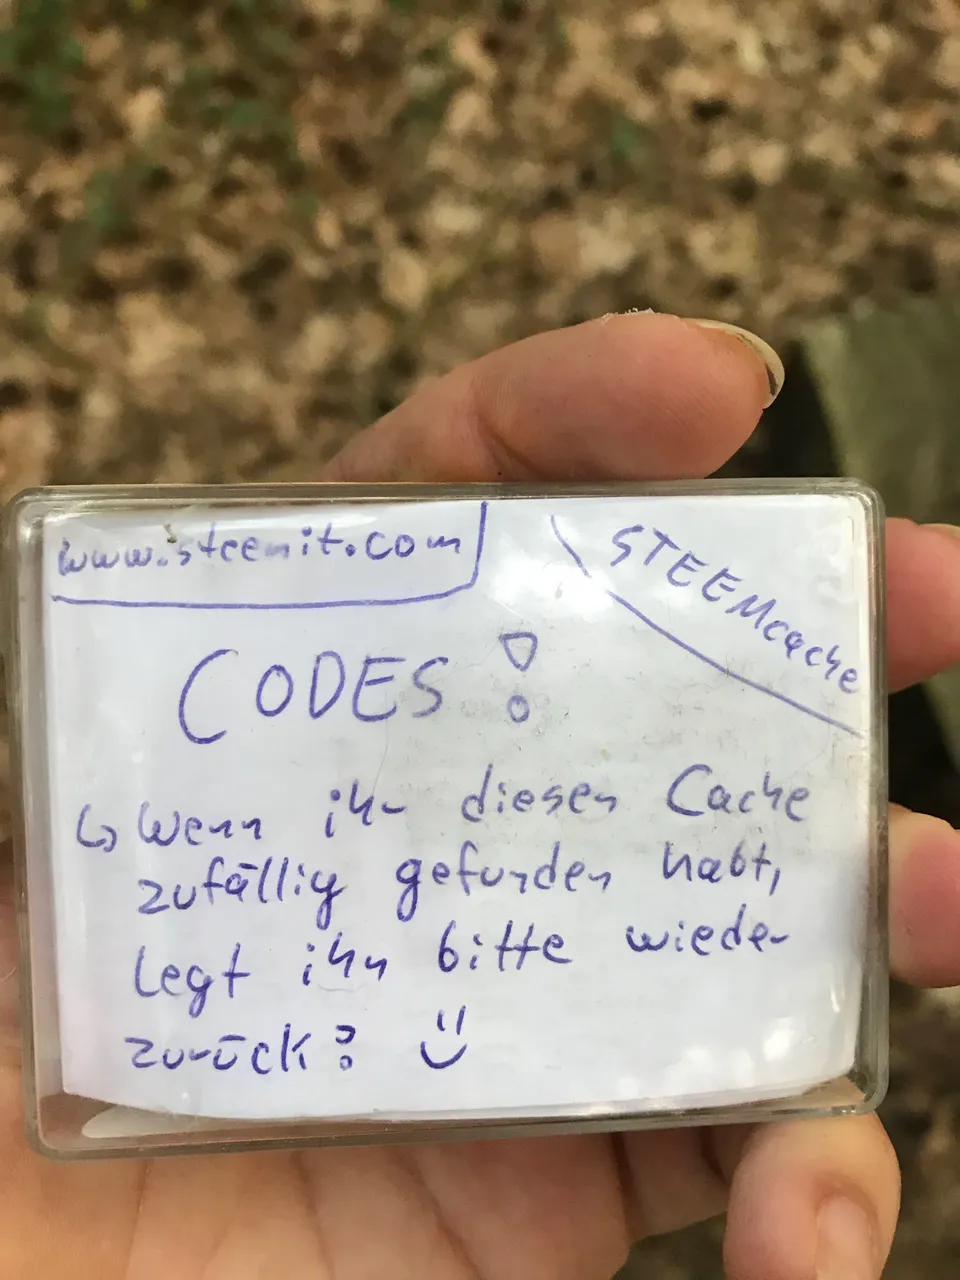 www.steemit.com
STEEMcache
CODES!
↳ Wenn ihr diesen Cache
zufällig gefunden habt,
legt ihn bitte wieder
zurück! :)